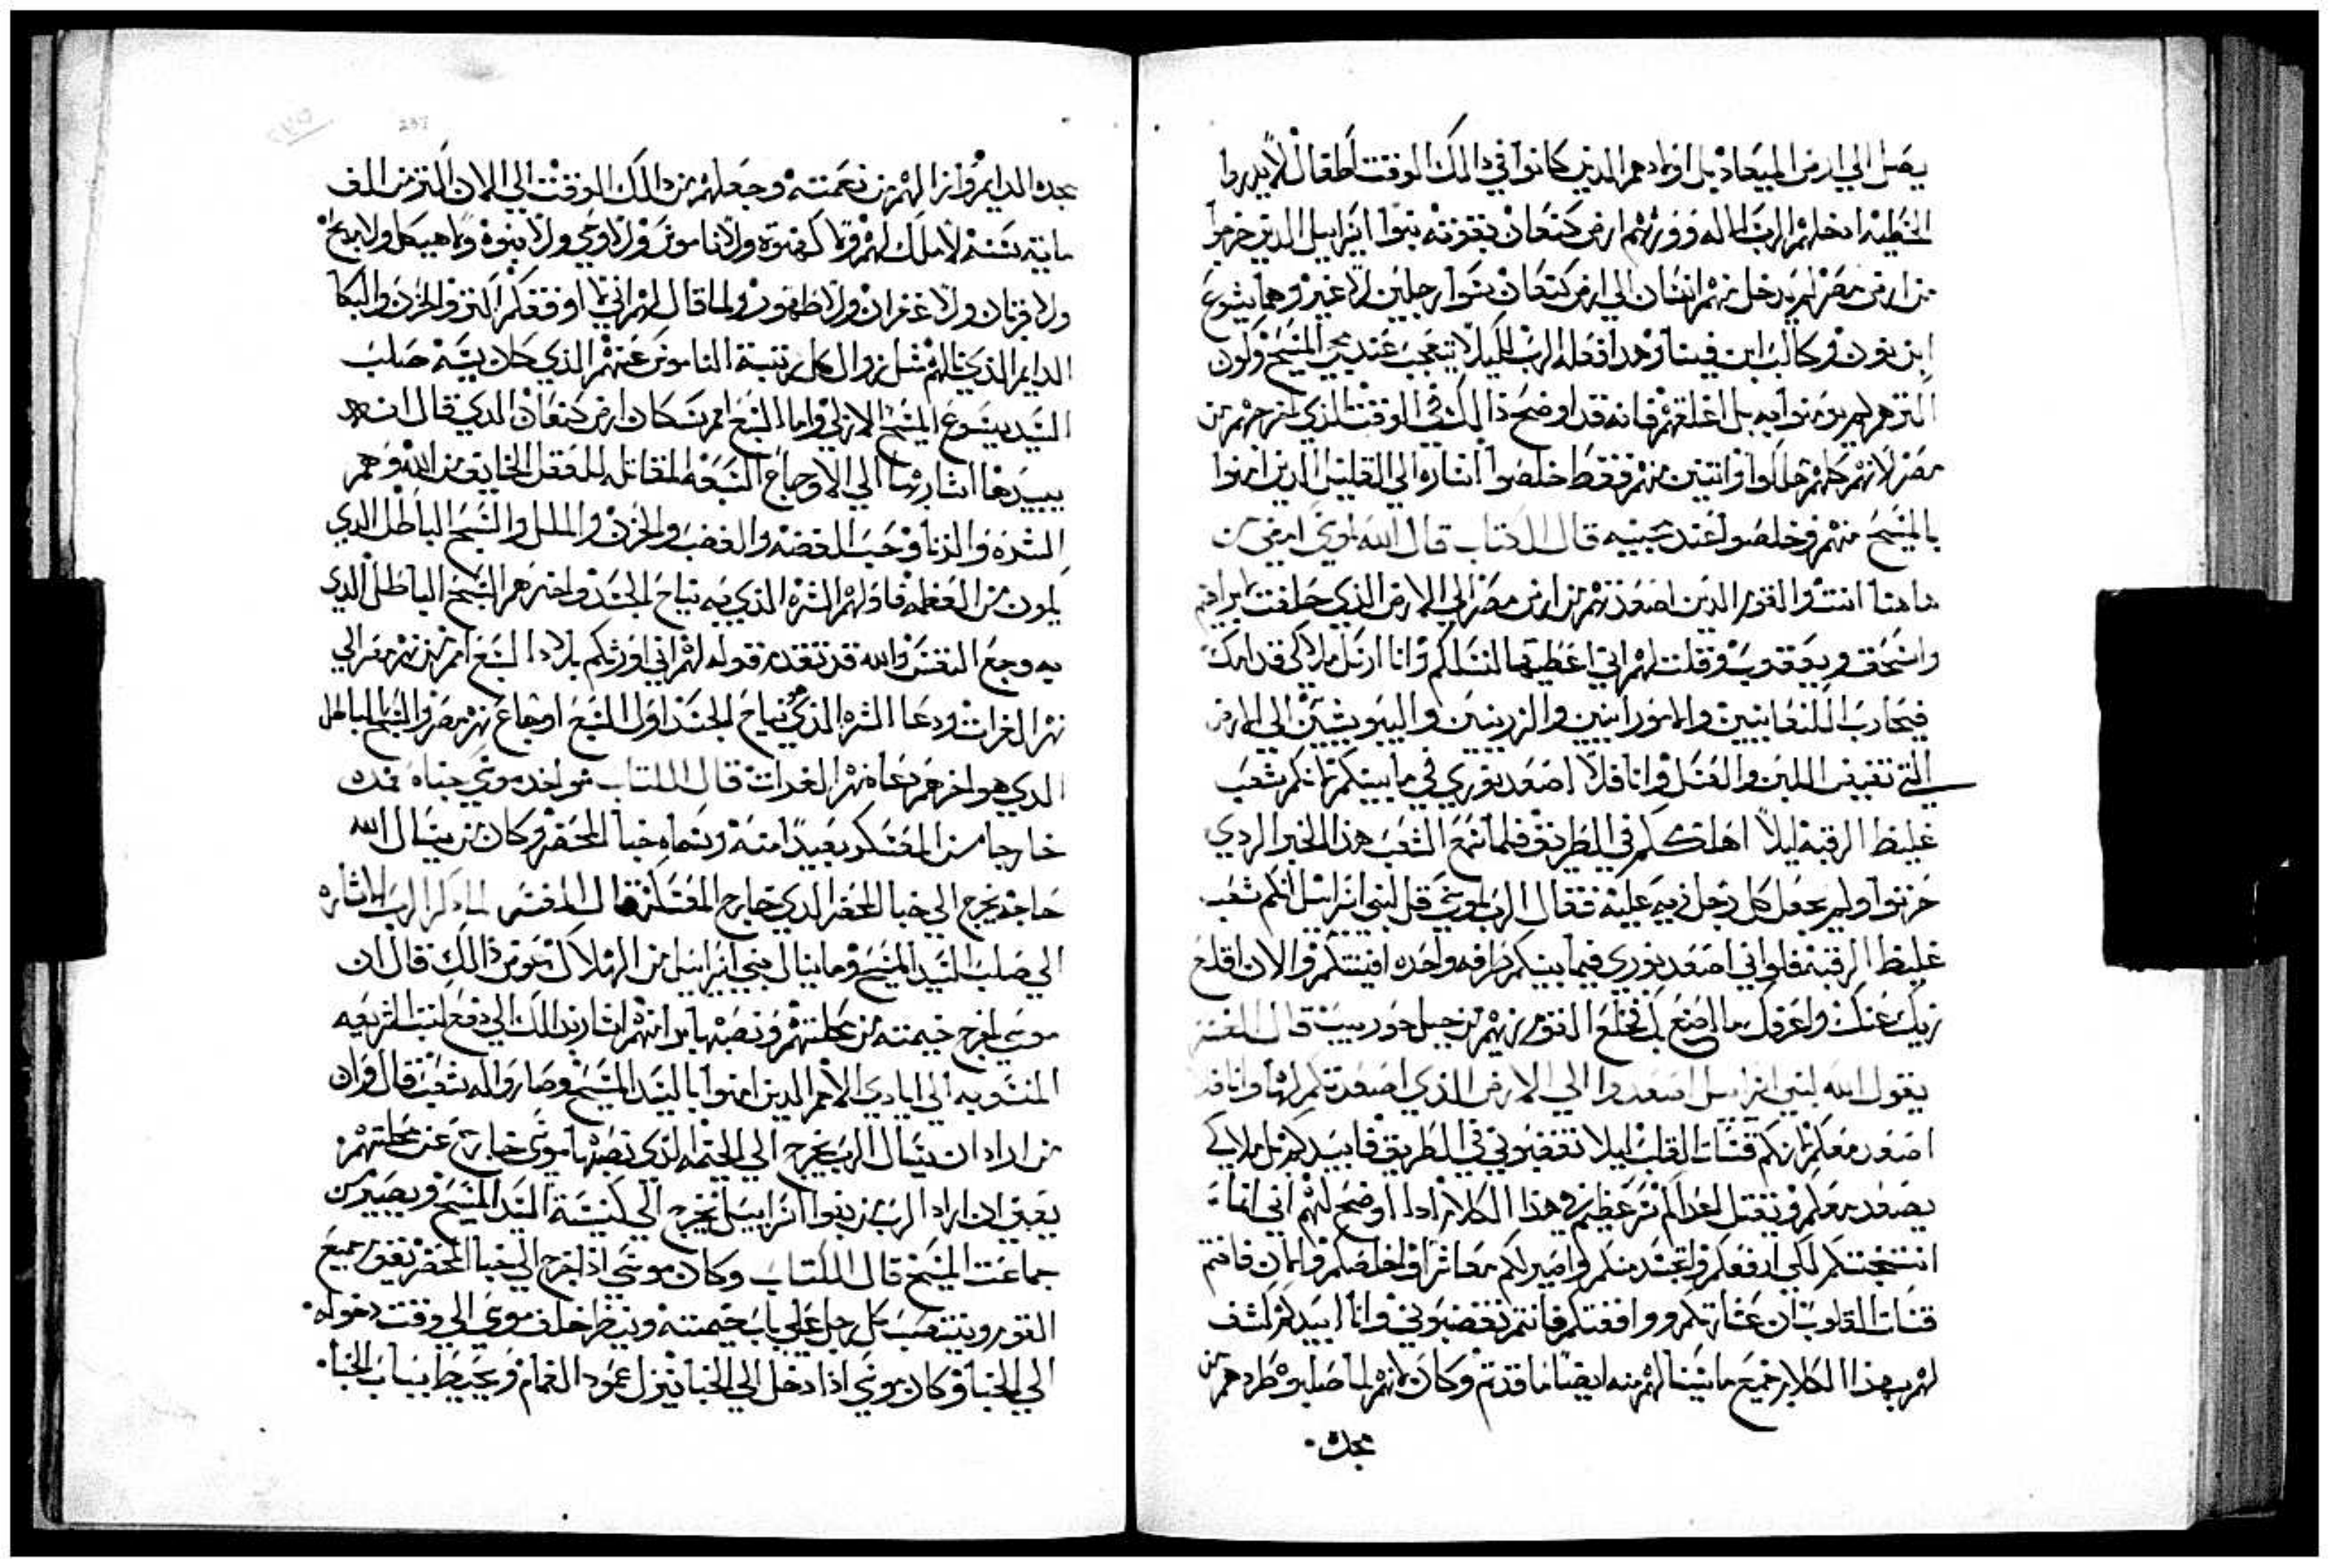 يصل الي ارض الميعاد بل اولادهم الدين كانوا في دالك الوقت اطفال لا يدروا
الخطيه ادخلهم الرب الاله وورثهم ارض كنعان بقوته بنوا اسراييل الدين خرجوا
من ارض مصر لم يدخل منهم انسان الي ارض كنعان سوا رجلين لا غير وهما يشوع
ابن نون وكالب ابن فيسا وهدا فعله الرب لكيلا يتعجب عند مجي المسيح ولون
اكترهم لم يومنوا به بل اغلقهم فانه قد اوضح دالك في الوقت الذي اخرجهم من
مصر لانهم كلهم هلكوا واتنين منهم فقط خلصوا اشاره الي القليل الدين امنوا
بالمسيح منهم وخلصوا عند مجييه قال الكتاب قال الله لموسي امضي من
هاهنا انت والقوم الدين اصعدتهم من ارض مصر الي الارض الذي حلفت لابراهيم
واسحق ويعقوب وقلت لهم اني اعطيها لنسلكم وانا ارسل ملاكي قدامك
فيحارب الكنعانيين والامورانيين والزرنيين واليبوسيين الي الارض
التي تفيض اللبن والعسل وانا فلا اصعد بنوري في ما بينكم لانكم شعب
غليظ الرقبه ليلا اهلككم في الطريق فلما سمع الشعب هذا الخبر الردي
حزنوا ولم يجعل كل رجل زيه عليه فقال الرب لموسي قل لبني اسراييل انكم شعب
غليظ الرقبه فلو اني اصعد بنوري فيما بينكم مرافه واحده افنيتكم والان اقلع
زيك عنك واعرفك ما اصنع بك فخلع القوم زيهم من جبل حوريب قال المفسر
يقول الله لبني اسراييل اصعدوا الي الارض الذي اصعدتكم لها وانا فلا
اصعد معكم لانكم قساة القلب ليلا تغضبوني في الطريق فابيدكم بل ملاكي
يصعد معكم ويقتل اعداكم سر عظيم في هذا الكلام اداا اوضح لهم اني انما
انتسجتكم لكي ارفعكم واتجسد منكم واصير لكم معاشرا واخلصكم والان فانتم
قساة القلوب ان عشارتكم ووافقتكم فانتم تغضبوني وانا ابيدكم كشف
لهم بهذا الكلام جميع ما سينالهم منه ايضا ما قدتم وكان لانهم لما صلبوه طردهم من
مجده
مجده الدايم وازالهم من نعمته وجعلهم من دالك الوقت الي الان اكتر من الف
مايه سنه لا ملك لهم ولا كهنوة ولا ناموس ولا وحي ولا بنوة ولا هيكل ولا مدبح
ولا قربان ولا غفران ولا طهور ولما قال لهم اني لا اوفقكم اكترو الحزن والبكا
الدايم الذي نالهم مثل زوال كل رتبة الناموس عنهم الذي حل بهم سبه صلب
السيد يسوع المسيح الازلي واما السبع امم سكان ارض كنعان الدي قال انه
يبيدها اشار بها الي الاوجاع السبعه المقاتله للعقل الخايف من الله وهم
الشره والزنا وحب الفضه والغضب والحزن والملل والسبح الباطل الدي
يكون من العظمه فاولهم الشره الذي فيه نياح الجسد واخرهم السبح الباطل الدي
به وجع النفس والله قد تقدم قوله لهم اني اورثكم بلاد السبع امم من نهر مصر الي
نهر الفرات ودعا الشره الذي نياح الجسد اول السبع اوجاع نهر مصر والسبح الباطل
الدي هو اخرهم دعاه نهر الفرات قال الكتاب فواخد موسي خباه فمده
خارجا من المعسكر بعيدا منه وسماه خبا المحضر وكان من يسال الله
حاجه يخرج الي خبا المحضر الدي خارج المعسكر قال المفسر لما دكر الرب الاشاره
الي صلب السيد المسيح وما ينال بني اسراييل من الهلاك عوض دالك قال ان
موسي اخرج خيمته من محلتهم ونصبها برا منهم اشار بدالك الي دفع كتب الشريعه
المنسوبه الي ايادي الامم الدين امنوا بالسيد المسيح وصاروا له شعب قال وان
من اراد ان يسال الرب يخرج الي الخيمه الذي نصبها موسي خارج عن محلتهم
يعني ان اراد الرب من بنوا اسراييل يخرج الي كنيسة السيد المسيح ويصير من
جماعت المسيح قال الكتاب وكان موسي اذا خرج الي خبا المحضر تقوم جميع
القوم وينتصب كل رجل علي باب خيمته وينظر خلف موسي الي وقت دخوله
الي الخبا وكان موسي اذا دخل الي الخبا فينزل عمود الغمام ويحيط بباب الخبا